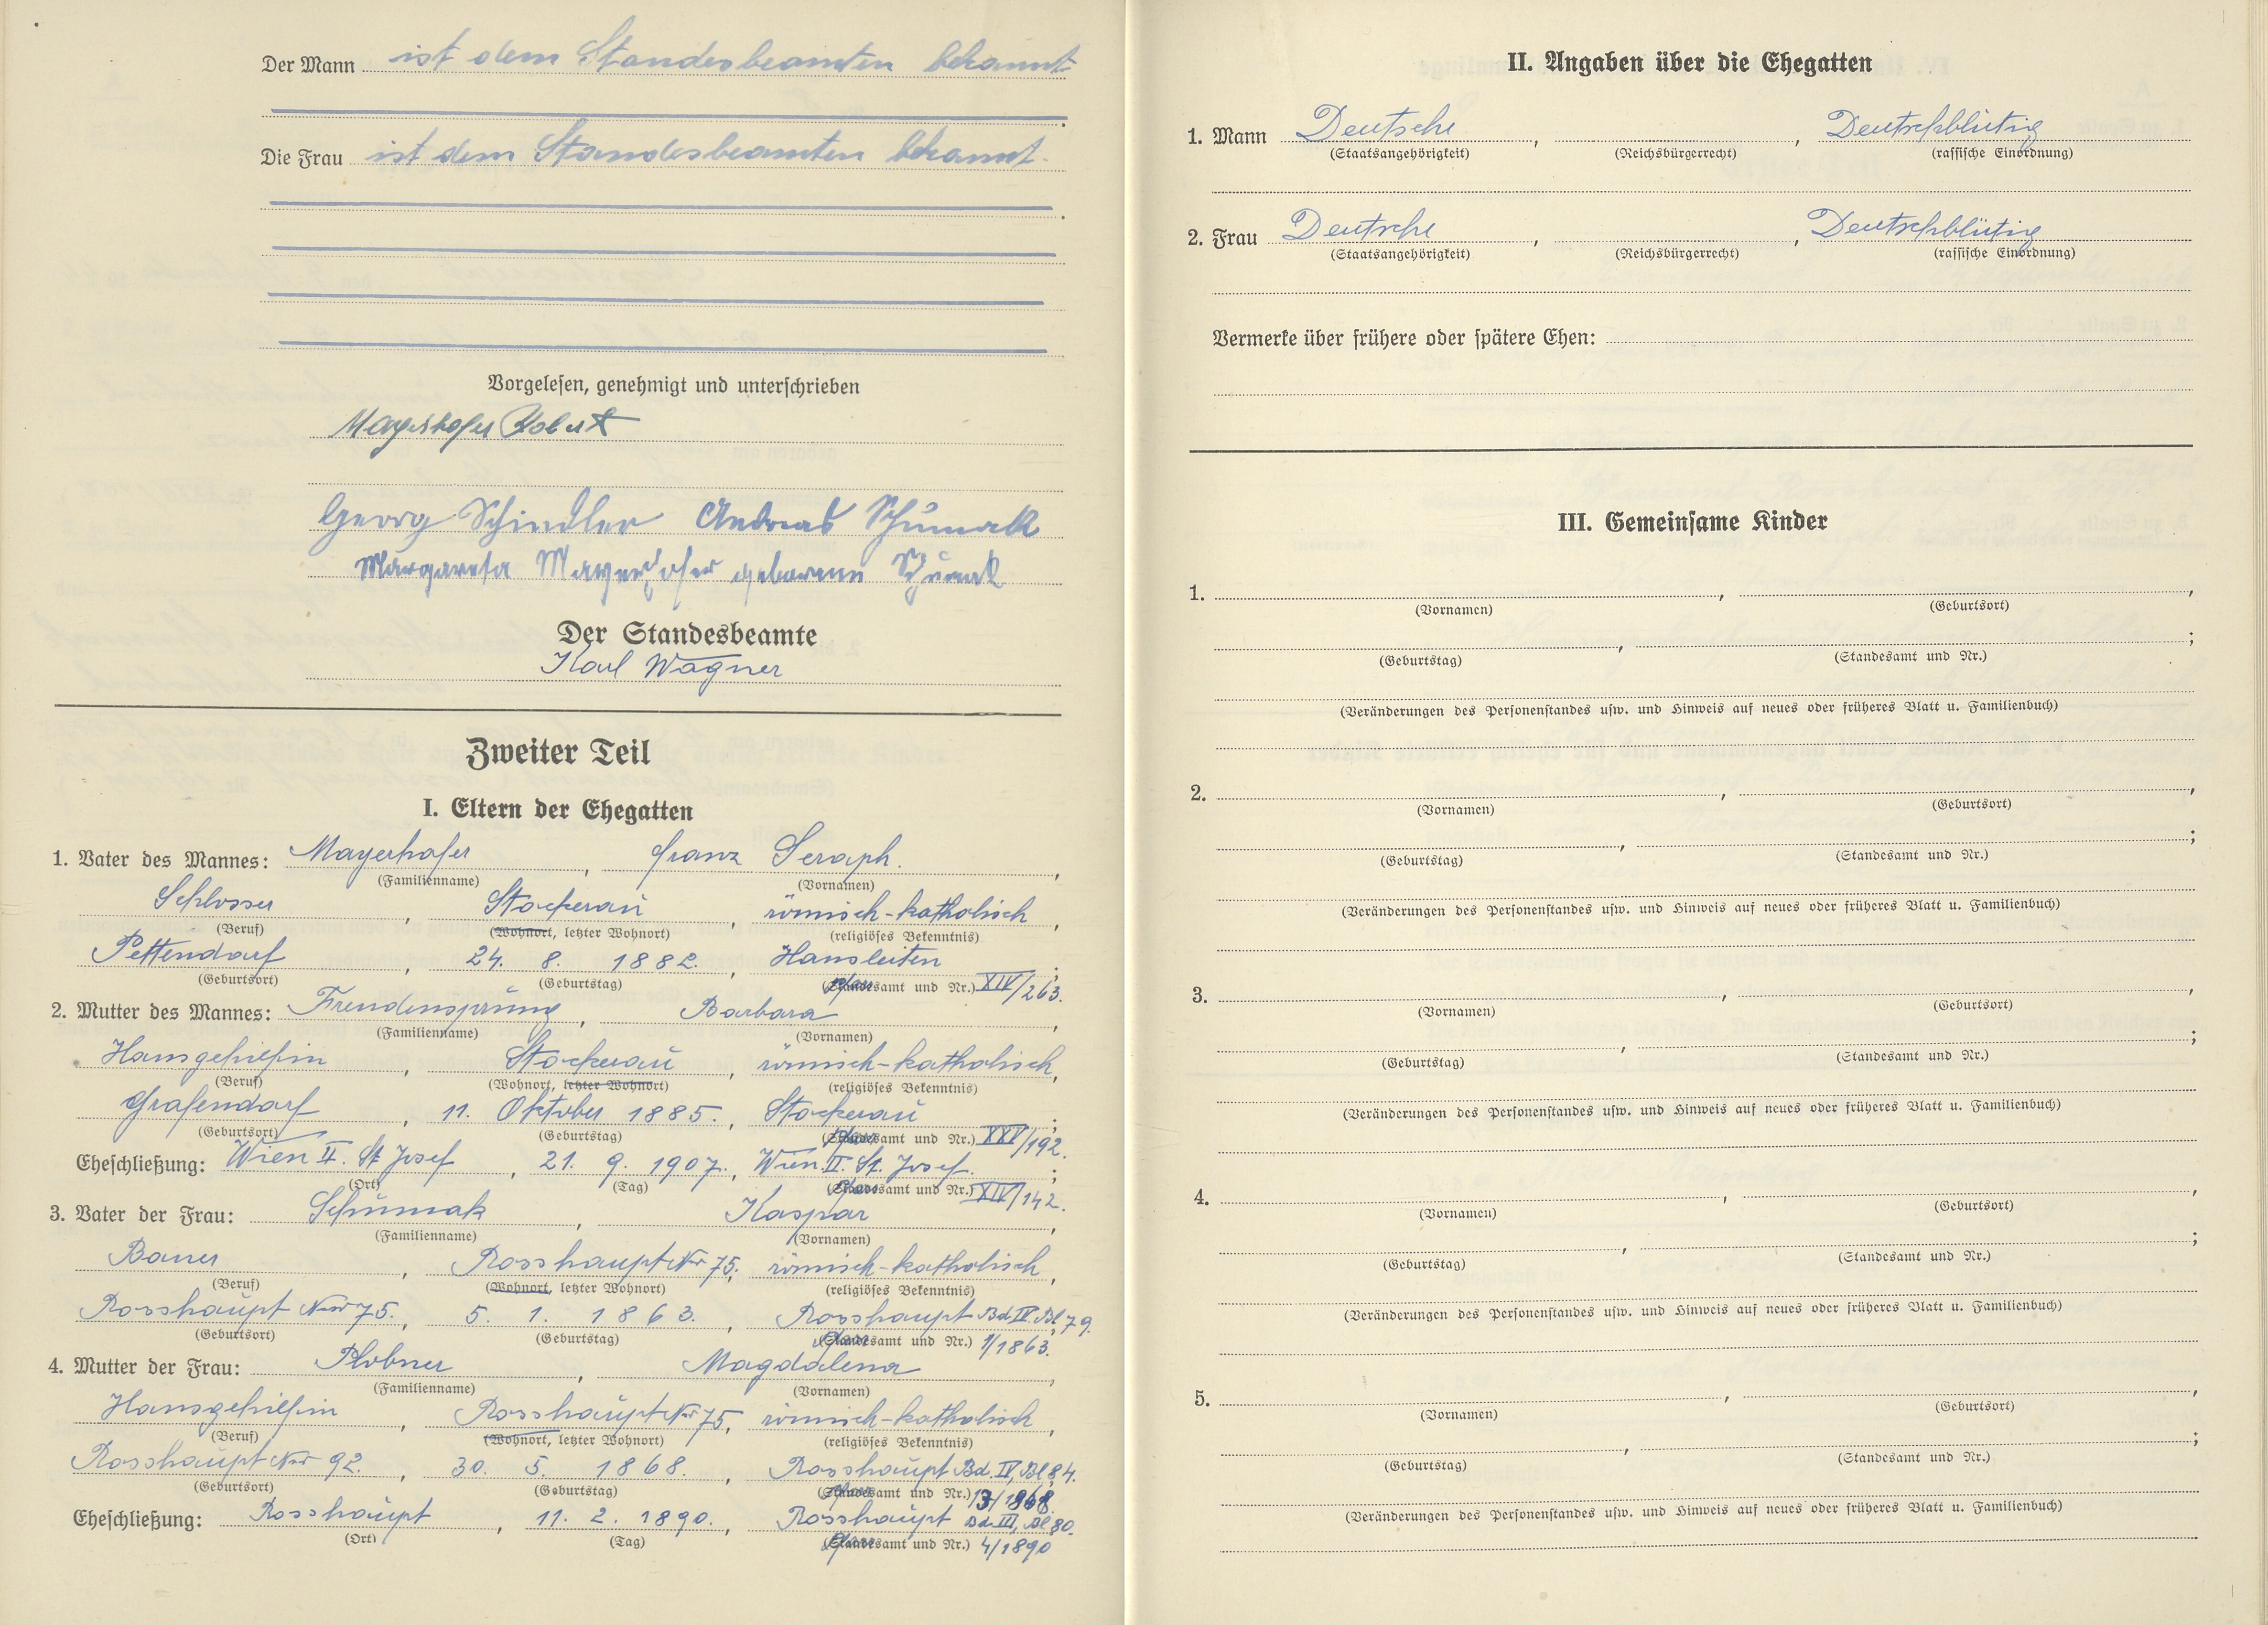 Der Mann ist dem Standesbeamten bekannt
Die Frau ist dem Standesbeamten bekannt.
Vorgelesen, genehmigt und unterschrieben
Mayerhofer Robert
Georg Schindler Andreas Schümak
Margareta Mayerhofer geborene Schümak
Der Standesbeamte
Karl Wagner
Zweiter Teil
I. Eltern der Ehegatten
1. Vater des Mannes: Mayerhofer, Franz Seraph.,
(Familienname) (Vornamen)
Schlosser, Stockerau, römisch-katholisch,
(Beruf) (Wohnort, letzter Wohnort) (religiöses Bekenntnis)
Pettendorf, 24. 8. 1882., Hausleiten;
(Geburtsort) (Geburtstag) (Pfarramt und Nr.) XIV/263.
2. Mutter des Mannes: Freudensprung, Barbara,
(Familienname) (Vornamen)
Hausgehilfin, Stockerau, römisch-katholisch,
(Beruf) (Wohnort, letzter Wohnort) (religiöses Bekenntnis)
Grafendorf, 11. Oktober 1885., Stockerau;
(Geburtsort) (Geburtstag) (Pfarramt und Nr.) XXV/192.
Eheschließung: Wien II. St Josef, 21. 9. 1907., Wien II. St. Josef.;
(Ort) (Tag) (Pfarramt und Nr.) XIV/142.
3. Vater der Frau: Schümak, Kaspar,
(Familienname) (Vornamen)
Bauer, Rosshaupt Nr 75., römisch-katholisch,
(Beruf) (Wohnort, letzter Wohnort) (religiöses Bekenntnis)
Rosshaupt Nr 75., 5. 1. 1863., Rosshaupt Bd IV. Bl 79.;
(Geburtsort) (Geburtstag) (Pfarramt und Nr.) 1/1863.
4. Mutter der Frau: Plobner, Magdalena,
(Familienname) (Vornamen)
Hausgehilfin, Rosshaupt Nr 75, römisch-katholisch,
(Beruf) (Wohnort, letzter Wohnort) (religiöses Bekenntnis)
Rosshaupt Nr 92., 30. 5. 1868., Rosshaupt Bd. IV, Bl 84.
(Geburtsort) (Geburtstag) (Pfarramt und Nr.) 13/1868.
Eheschließung: Rosshaupt, 11. 2. 1890., Rosshaupt Bd III, Bl 80.
(Ort) (Tag) (Pfarramt und Nr.) 4/1890
II. Angaben über die Ehegatten
1. Mann Deutsche, , Deutschblütig
(Staatsangehörigkeit) (Reichsbürgerrecht) (rassische Einordnung)
2. Frau Deutsche, , Deutschblütig
(Staatsangehörigkeit) (Reichsbürgerrecht) (rassische Einordnung)
Vermerke über frühere oder spätere Ehen:
III. Gemeinsame Kinder
1. , ,
(Vornamen) (Geburtsort)
, ;
(Geburtstag) (Standesamt und Nr.)
(Veränderungen des Personenstandes usw. und Hinweis auf neues oder früheres Blatt u. Familienbuch)
2. , ,
(Vornamen) (Geburtsort)
, ;
(Geburtstag) (Standesamt und Nr.)
(Veränderungen des Personenstandes usw. und Hinweis auf neues oder früheres Blatt u. Familienbuch)
3. , ,
(Vornamen) (Geburtsort)
, ;
(Geburtstag) (Standesamt und Nr.)
(Veränderungen des Personenstandes usw. und Hinweis auf neues oder früheres Blatt u. Familienbuch)
4. , ,
(Vornamen) (Geburtsort)
, ;
(Geburtstag) (Standesamt und Nr.)
(Veränderungen des Personenstandes usw. und Hinweis auf neues oder früheres Blatt u. Familienbuch)
5. , ,
(Vornamen) (Geburtsort)
, ;
(Geburtstag) (Standesamt und Nr.)
(Veränderungen des Personenstandes usw. und Hinweis auf neues oder früheres Blatt u. Familienbuch)